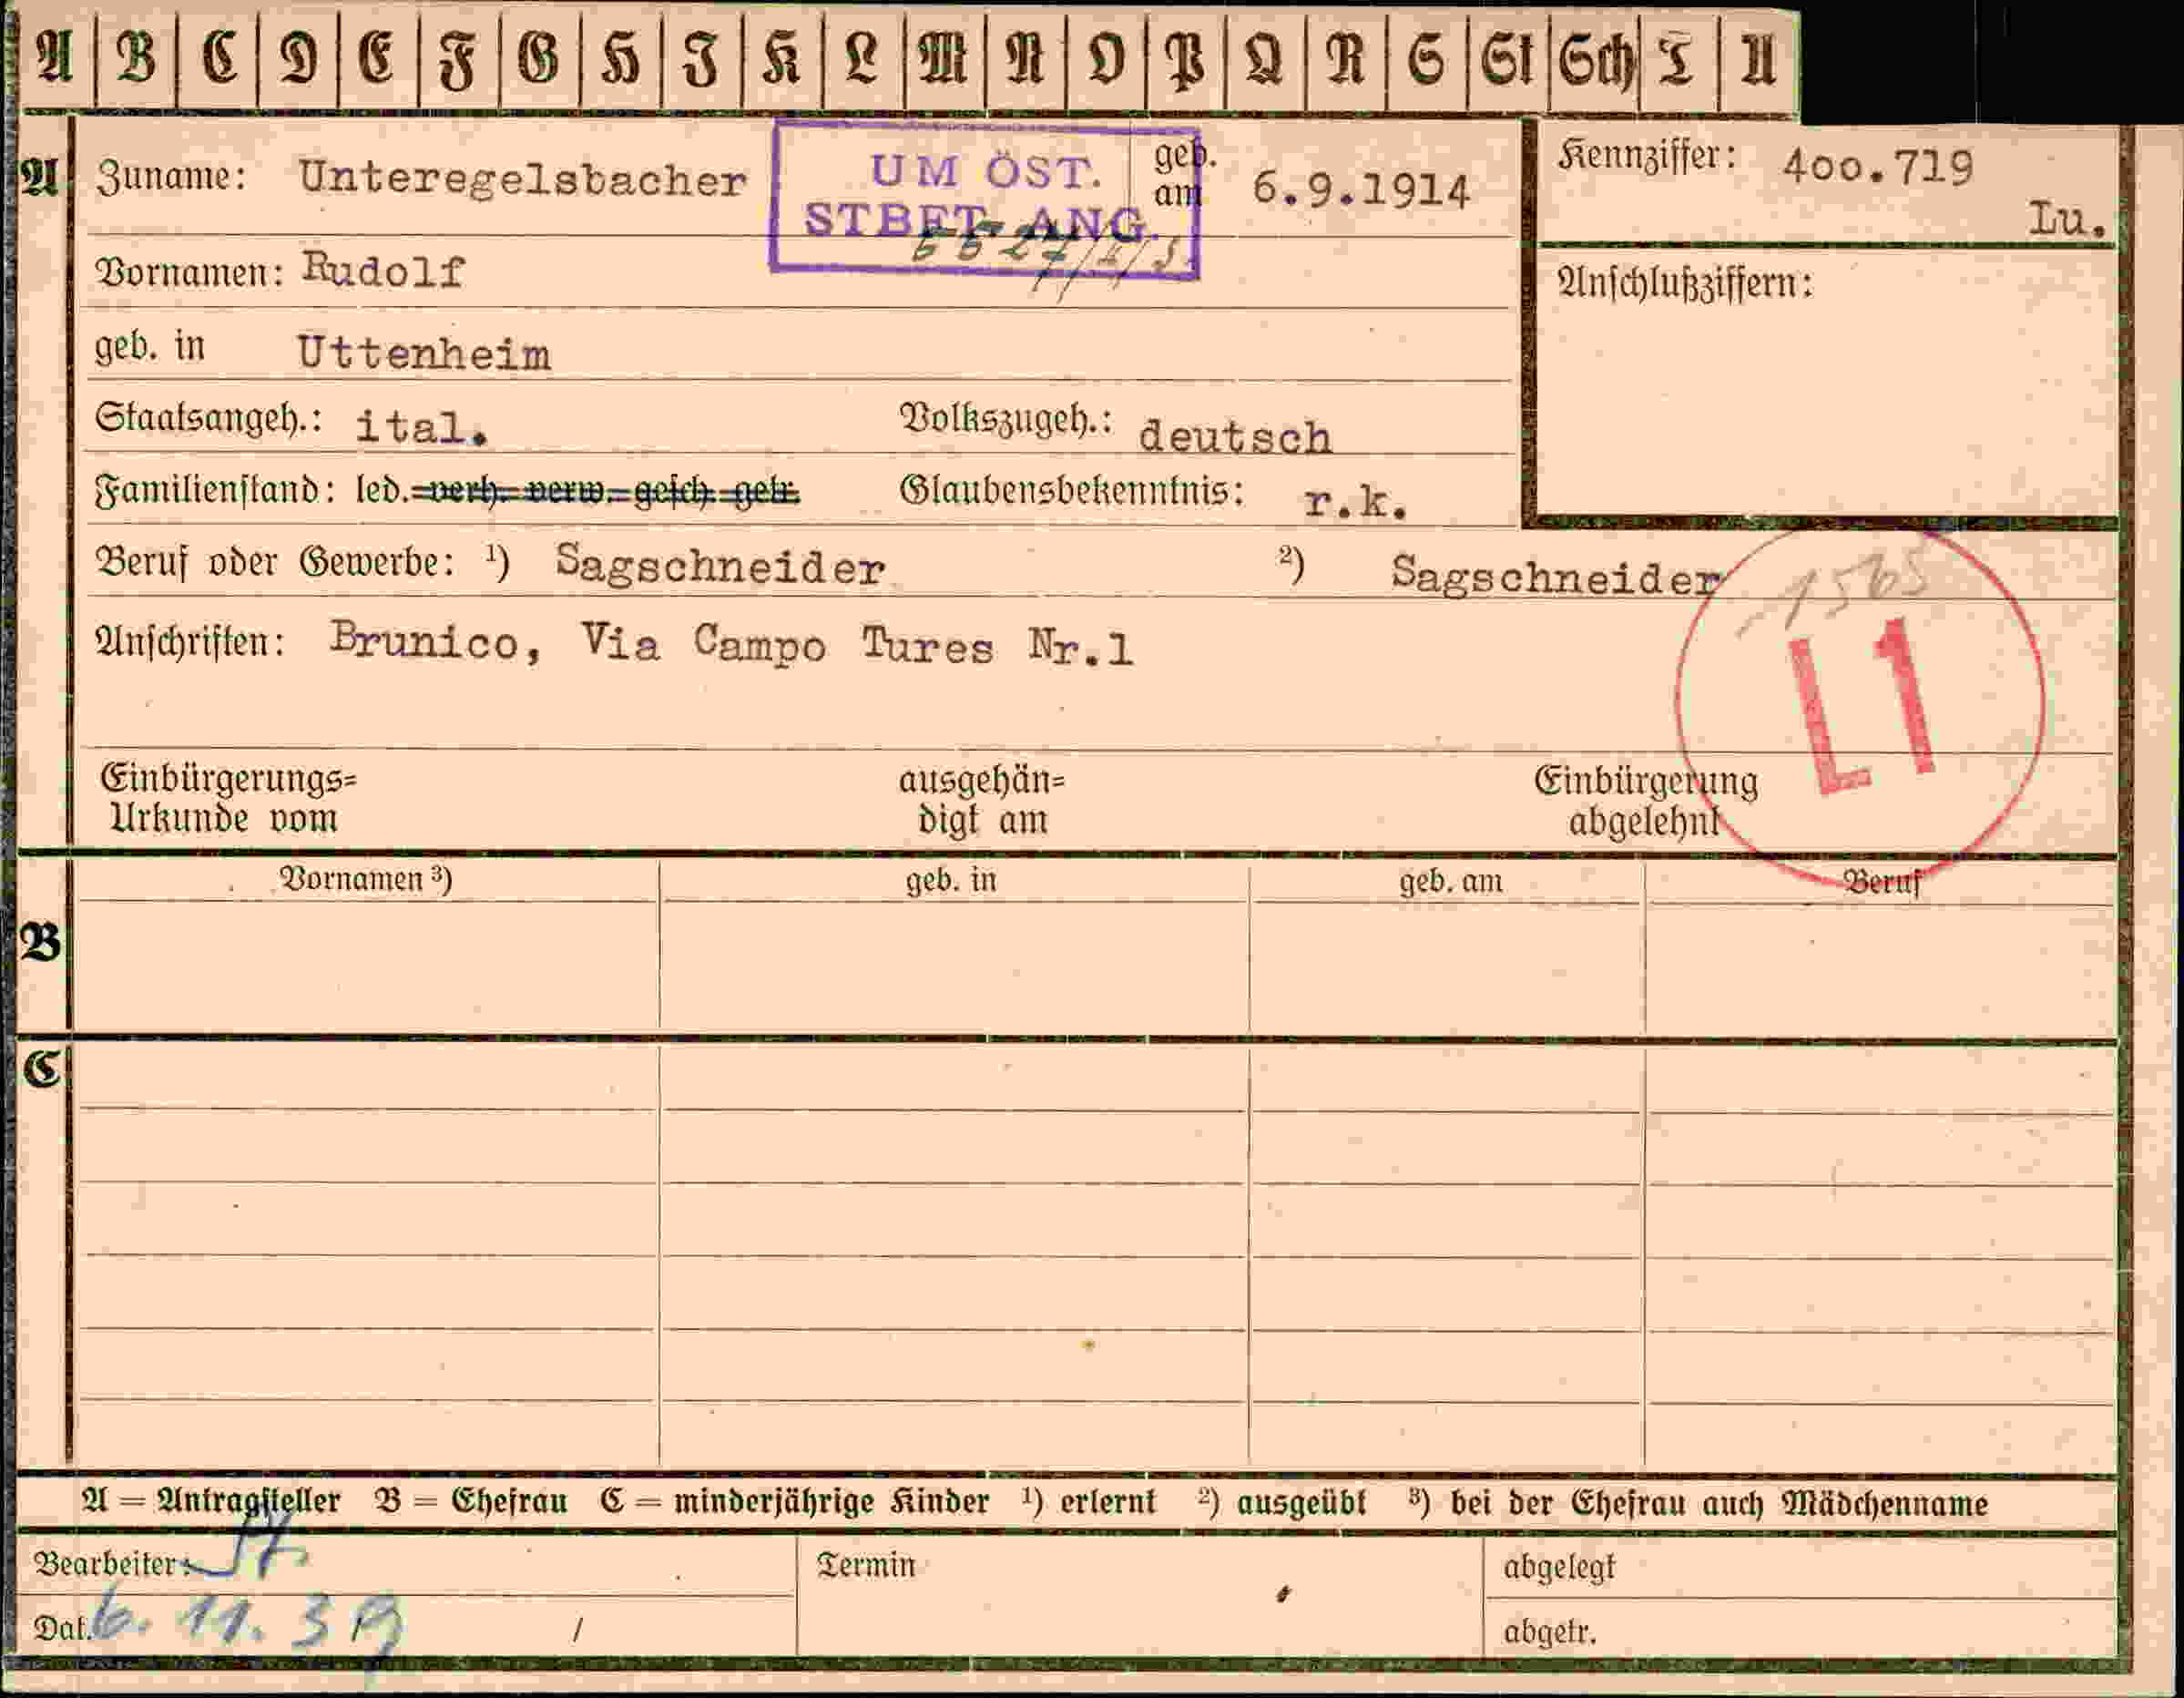 A B C D E F G H I K L M N O P Q R S St Sch T U
A Zuname: Unteregelsbacher geb. am 6.9.1914 Kennziffer: 4oo.719
UM ÖST.
STBET. ANG.
Lu.
Vornamen: Rudolf Anschlußziffern:
geb. in Uttenheim
Staatsangeh.: ital. Volkszugeh.: deutsch
Familienstand: led. verh. verw. gesch. getr. Glaubensbekenntnis: r.k.
Beruf oder Gewerbe: ¹) Sagschneider ²) Sagschneider
1565
L1
Anschriften: Brunico, Via Campo Tures Nr.1
Einbürgerungs= ausgehän= Einbürgerung
Urkunde vom digt am abgelehnt
Vornamen ³) geb. in geb. am Beruf
B
C
A = Antragsteller B = Ehefrau C = minderjährige Kinder ¹) erlernt ²) ausgeübt ³) bei der Ehefrau auch Mädchenname
Bearbeiter: Termin abgelegt
Dat. 6. 11. 39 / abgetr.